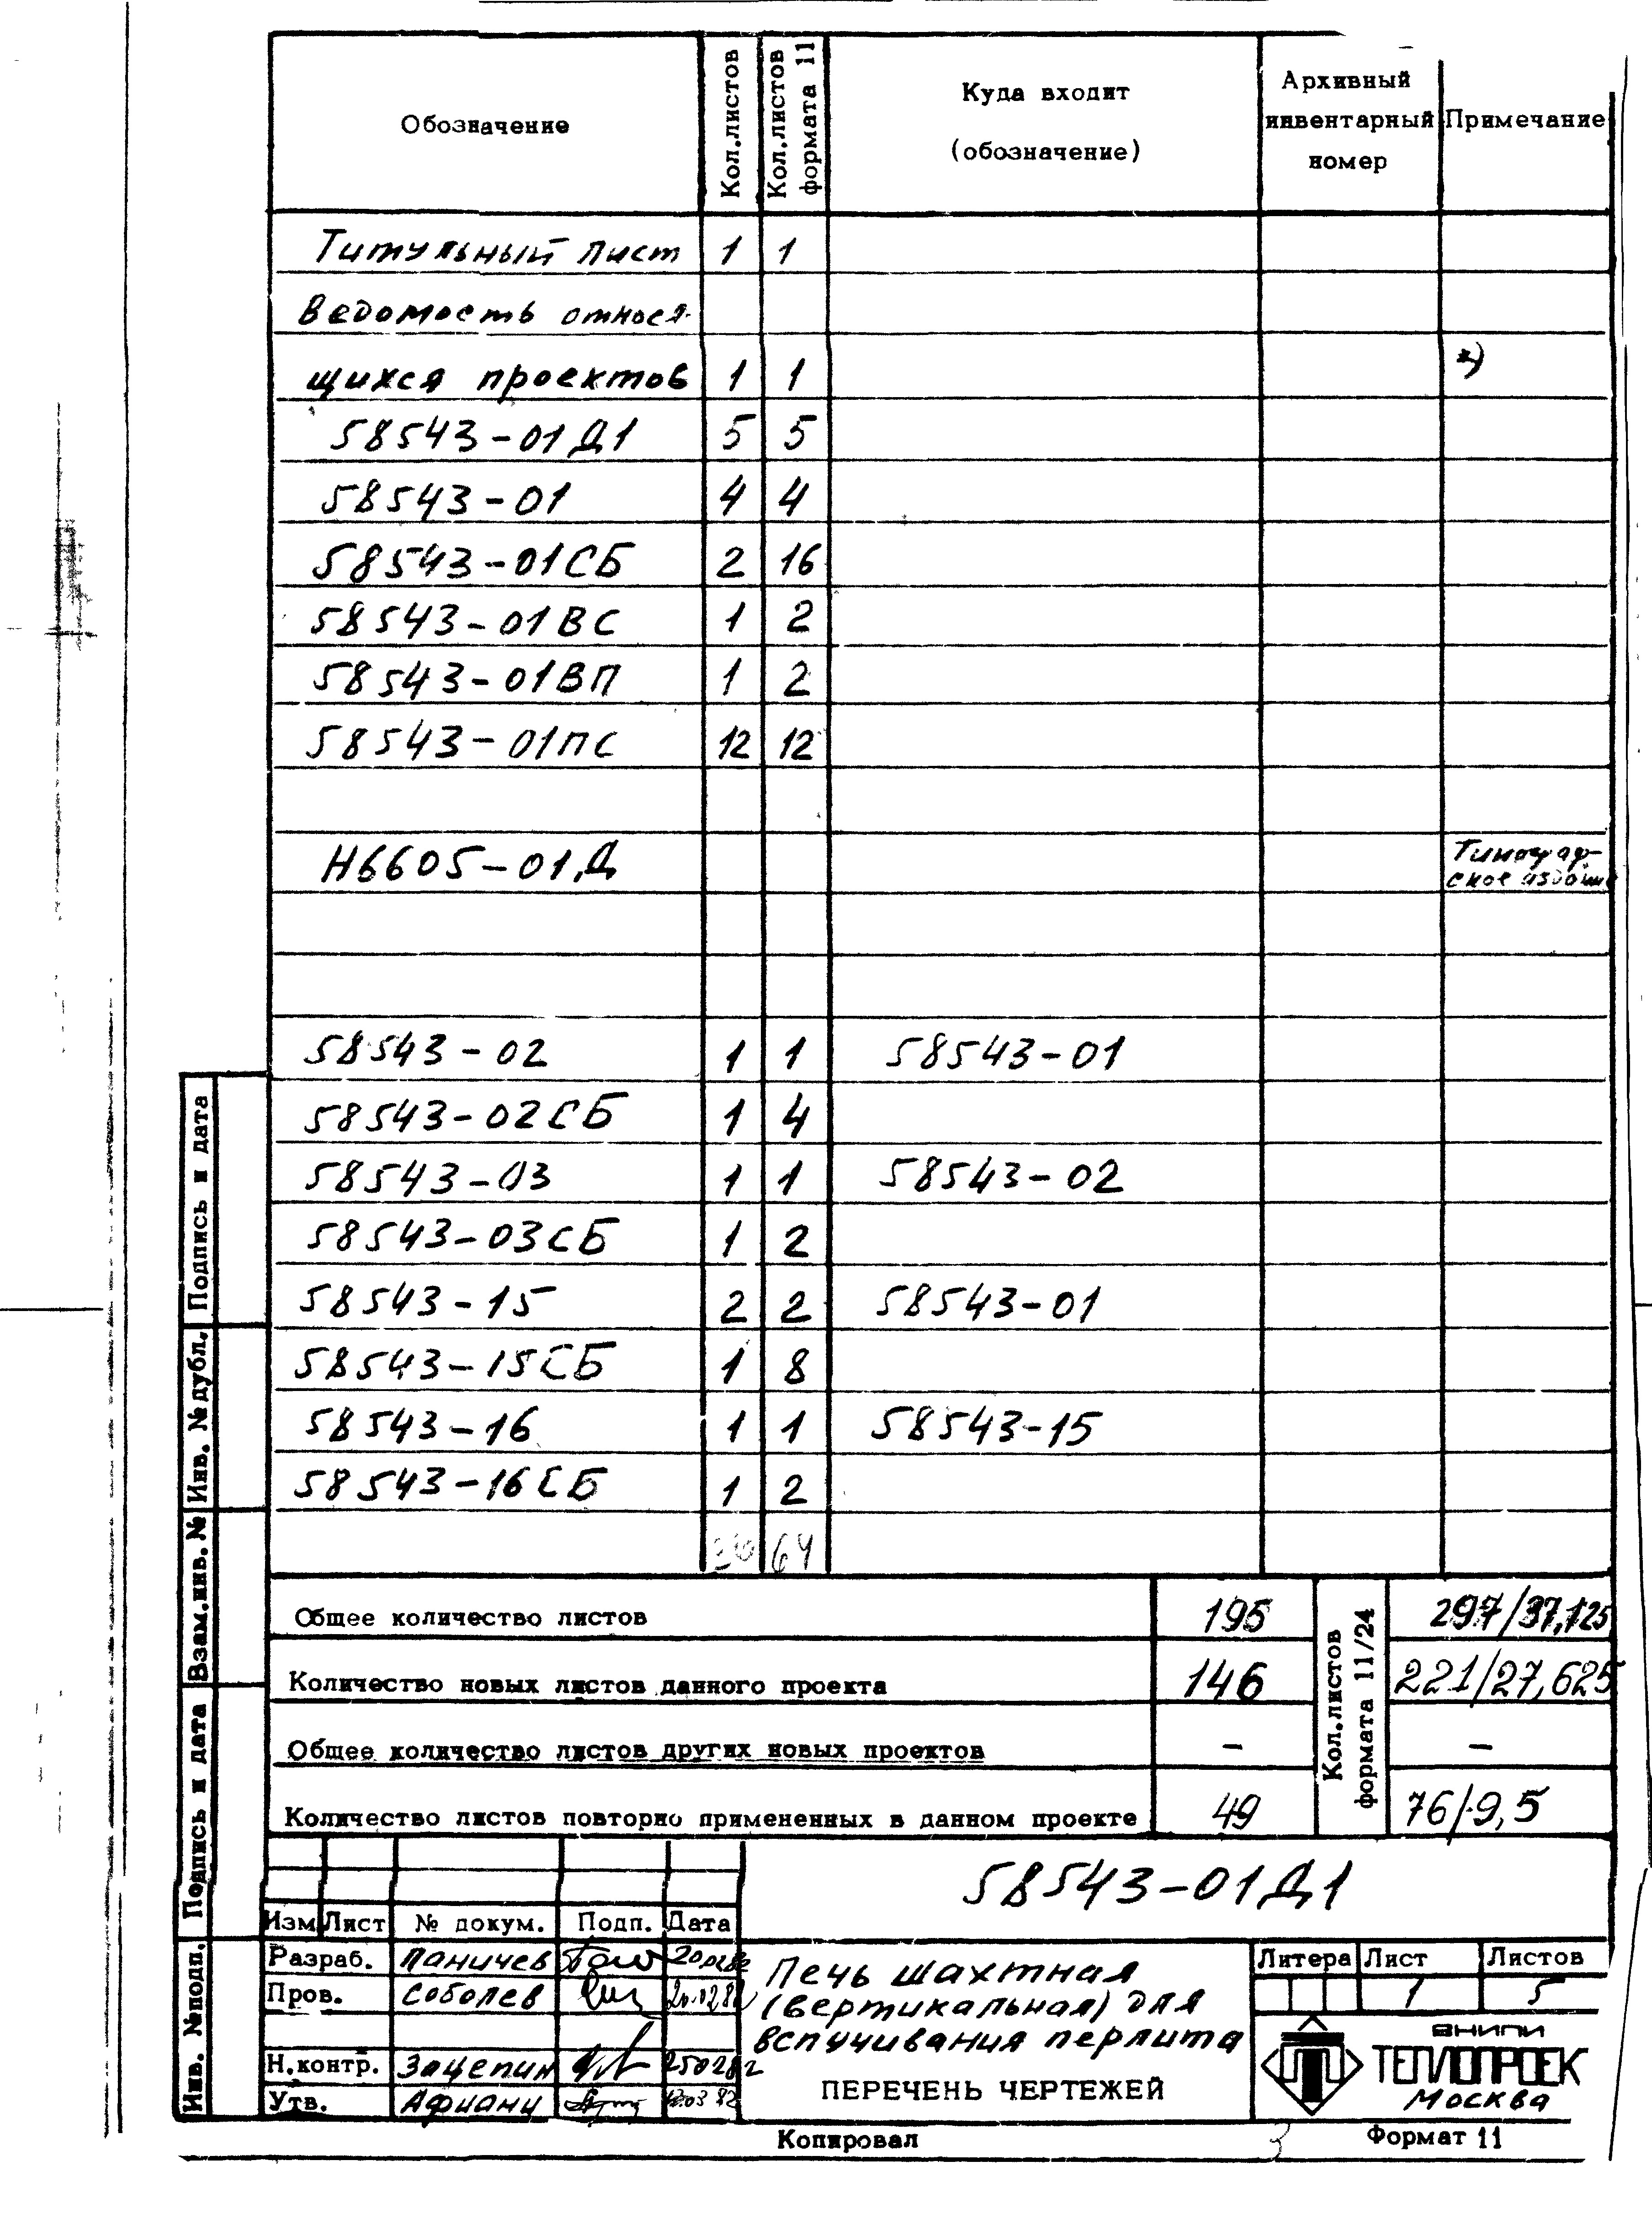 Обозначение Кол.листов Кол.листов формата 11 Куда входит (обозначение) Архивный инвентарный номер Примечание
Титульный лист 1 1
Ведомость относя-
щихся проектов 1 1 *)
58543-01Д1 5 5
58543-01 4 4
58543-01СБ 2 16
58543-01ВС 1 2
58543-01ВП 1 2
58543-01ПС 12 12
Н6605-01Д
58543-02 1 1 58543-01
58543-02СБ 1 4
58543-03 1 1 58543-02
58543-03СБ 1 2
58543-15 2 2 58543-01
58543-15СБ 1 8
58543-16 1 1 58543-15
58543-16СБ 1 2
64
Общее количество листов 195 Кол.листов формата 11/24 297/37,125
Количество новых листов данного проекта 146 221/27,625
Общее количество листов других новых проектов – –
Количество листов повторно примененных в данном проекте 49 76/9,5
58543-01Д1
Изм Лист № докум. Подп. Дата
Разраб. Паничев
Пров. Соболев
Н.контр. Зацепин
Утв. Афиани
Печь шахтная
(вертикальная) для
вспучивания перлита
ПЕРЕЧЕНЬ ЧЕРТЕЖЕЙ
Литера Лист Листов
1 5
ВНИПИ
ТЕПЛОПРОЕК
Москва
Копировал 3 Формат 11
Подпись и дата
Инв. № дубл.
Взам.инв. №
Подпись и дата
Инв. № подл.